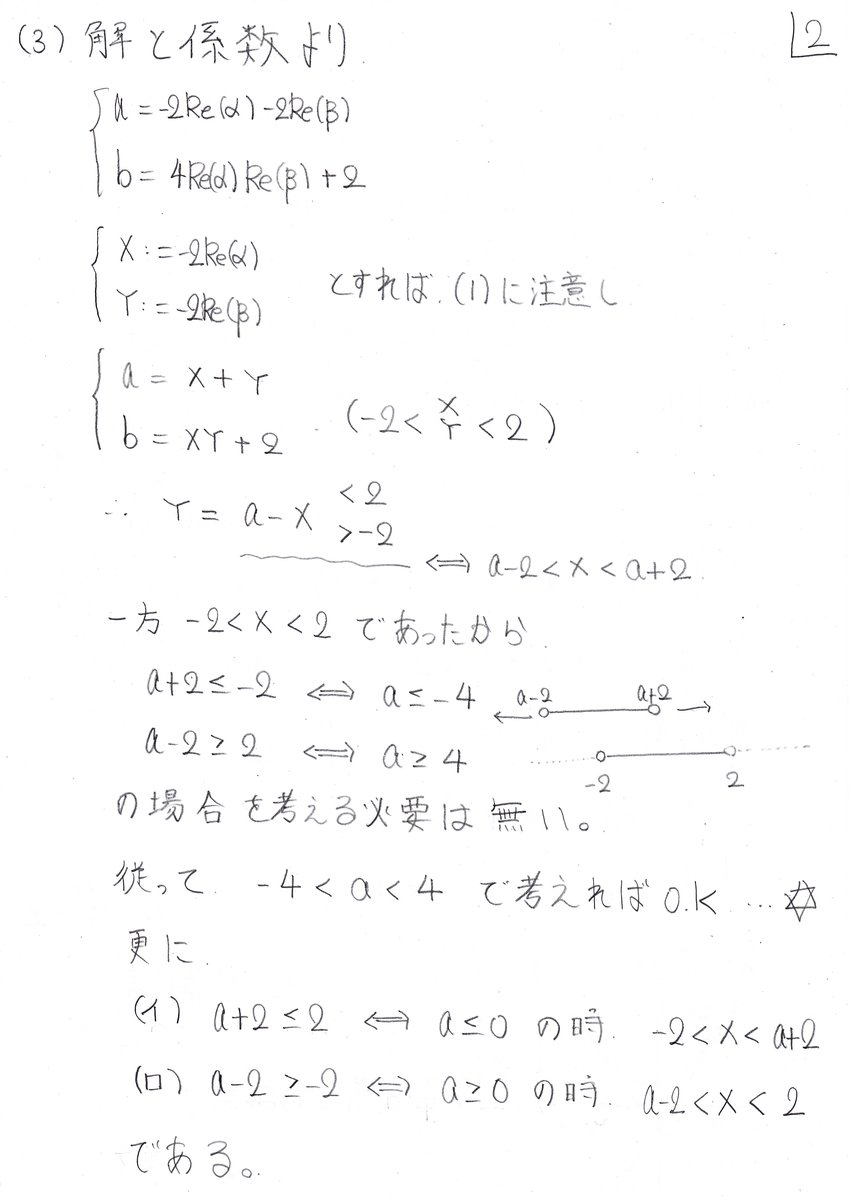 (3) 解と係数より 2
a = -2Re(α) -2Re(β)
b = 4Re(α) Re(β) + 2
X := -2Re(α)
Y := -2Re(β)
とすれば. (1)に注意し
a = X + Y
b = XY + 2 (-2 < X Y < 2)
∴ Y = a - X < 2 > -2
⇔ a-2 < X < a+2.
一方 -2 < X < 2 であったから
a+2 ≤ -2 ⇔ a ≤ -4 a-2 a+2
a-2 ≥ 2 ⇔ a ≥ 4 -2 2
の場合を考える必要は無い。
従って. -4 < a < 4 で考えれば O.K ... ✡
更に.
(イ) a+2 ≤ 2 ⇔ a ≤ 0 の時. -2 < X < a+2
(ロ) a-2 ≥ -2 ⇔ a ≥ 0 の時. a-2 < X < 2
である。